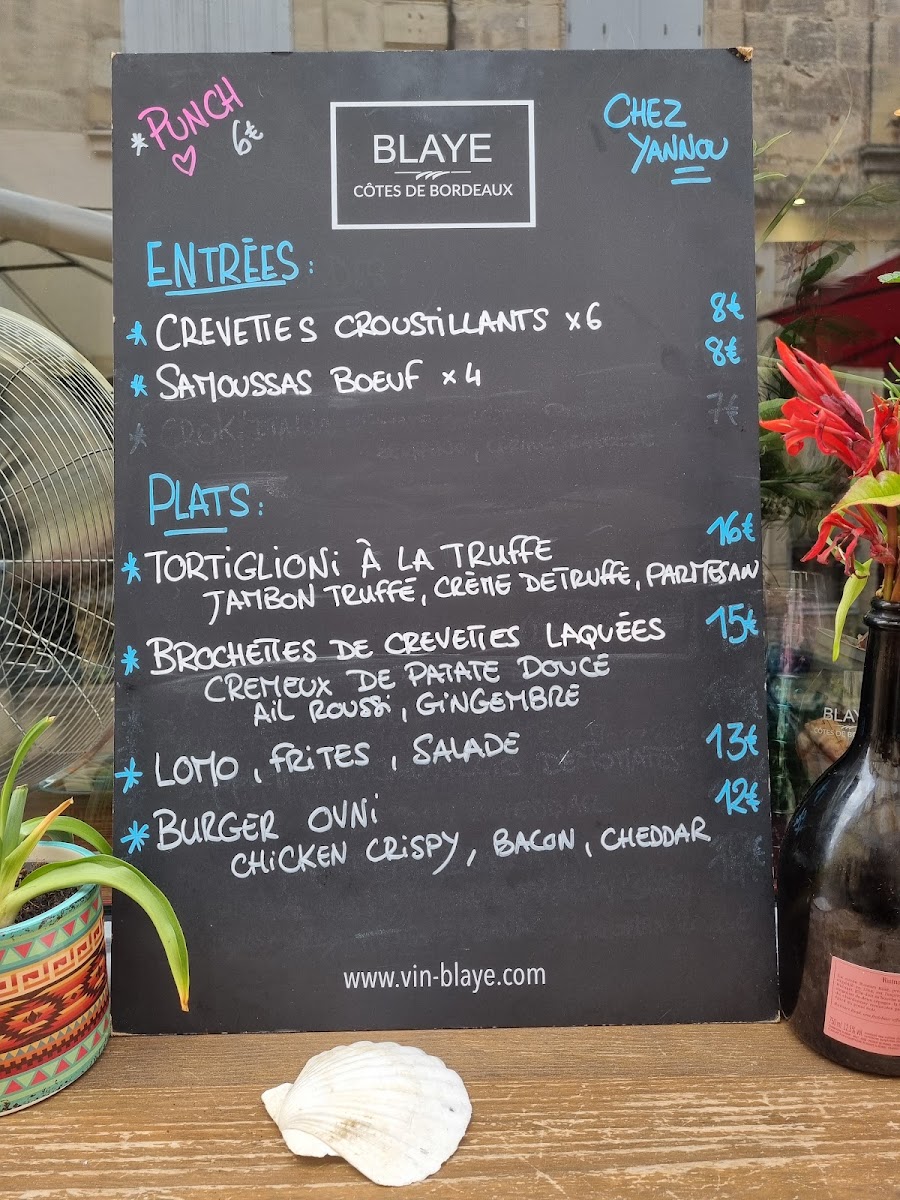 * PUNCH 6€
BLAYE
CÔTES DE BORDEAUX
CHEZ
YANNOU
ENTRÉES :
* CREVETTES CROUSTILLANTS x6 8€
* SAMOUSSAS BOEUF x4 8€
* 7€
PLATS :
* TORTIGLIONI À LA TRUFFE 16€
JAMBON TRUFFÉ, CRÈME DE TRUFFE, PARMESAN
* BROCHETTES DE CREVETTES LAQUÉES 15€
CREMEUX DE PATATE DOUCE
AIL ROUSSI, GINGEMBRE
* LOMO, FRITES, SALADE 13€
* BURGER OVNI 12€
CHICKEN CRISPY, BACON, CHEDDAR
www.vin-blaye.com